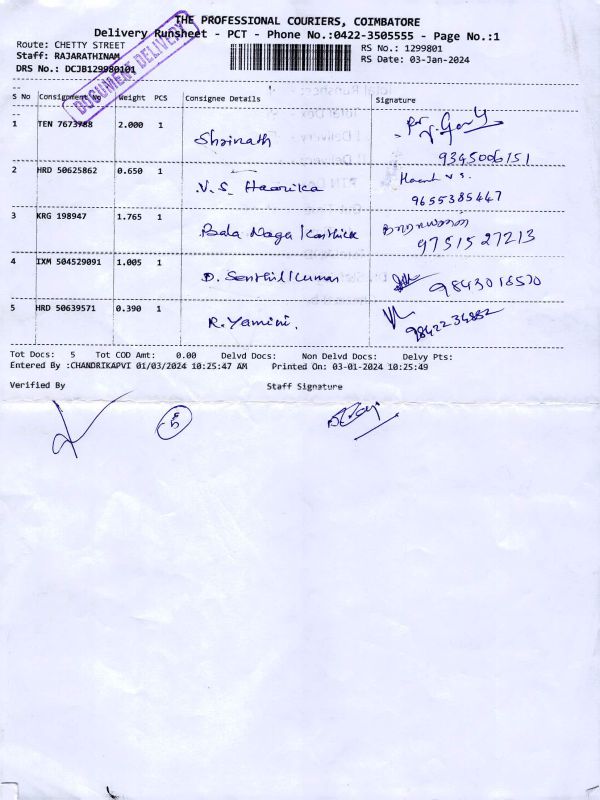 THE PROFESSIONAL COURIERS, COIMBATORE
Delivery Runsheet - PCT - Phone No.:0422-3505555 - Page No.:1
Route: CHETTY STREET
RS No.: 1299801
Staff: RAJARATHINAM
RS Date: 03-Jan-2024
DRS No.: DCJB129980101
DOCUMENT DELIVERY
S No Consignment No Weight PCS Consignee Details Signature
1 TEN 7673788 2.000 1 Shrinath
9345006151
2 HRD 50625862 0.650 1 V.S. Haarika
9655385447
3 KRG 198947 1.765 1 Bala Naga Karthick
9751527213
4 IXM 504529091 1.005 1 D. Senthil Kumar
5 HRD 50639571 0.390 1 R. Yamini.
Tot Docs: 5 Tot COD Amt: 0.00 Delvd Docs: Non Delvd Docs: Delvy Pts:
Entered By :CHANDRIKAPVI 01/03/2024 10:25:47 AM Printed On: 03-01-2024 10:25:49
Verified By Staff Signature